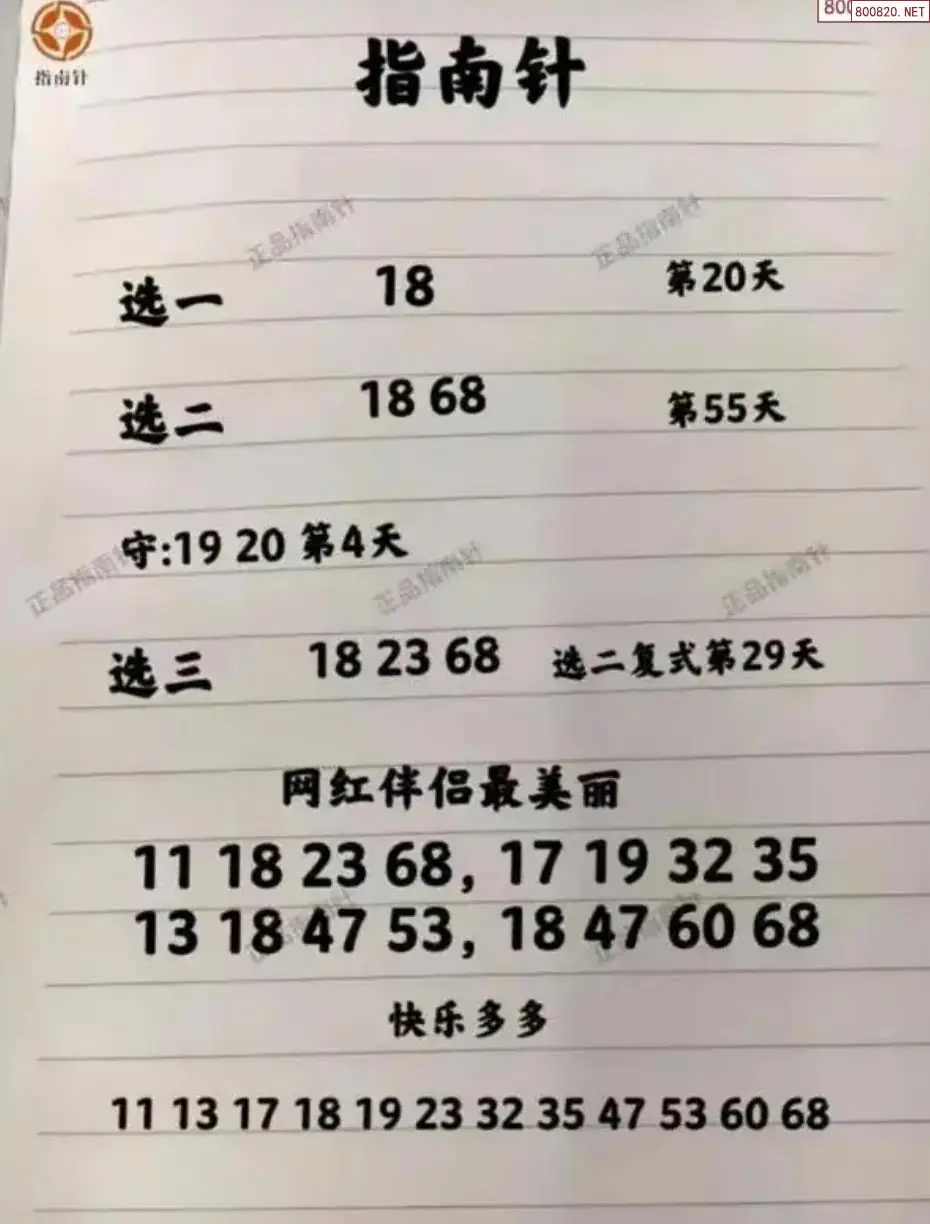 800820.NET
指南针
指南针
正品指南针 正品指南针
选一 18 第20天
选二 18 68 第55天
守:19 20 第4天
正品指南针 正品指南针 正品指南针
选三 18 23 68 选二复式第29天
网红伴侣最美丽
11 18 23 68, 17 19 32 35
13 18 47 53, 18 47 60 68
正品指南针 正品指南针
快乐多多
11 13 17 18 19 23 32 35 47 53 60 68